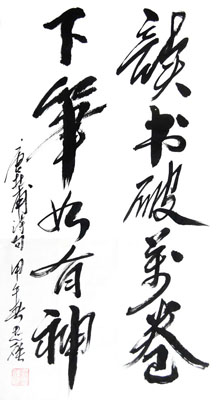 读书破万卷
下笔如有神
唐杜甫诗句 甲午春